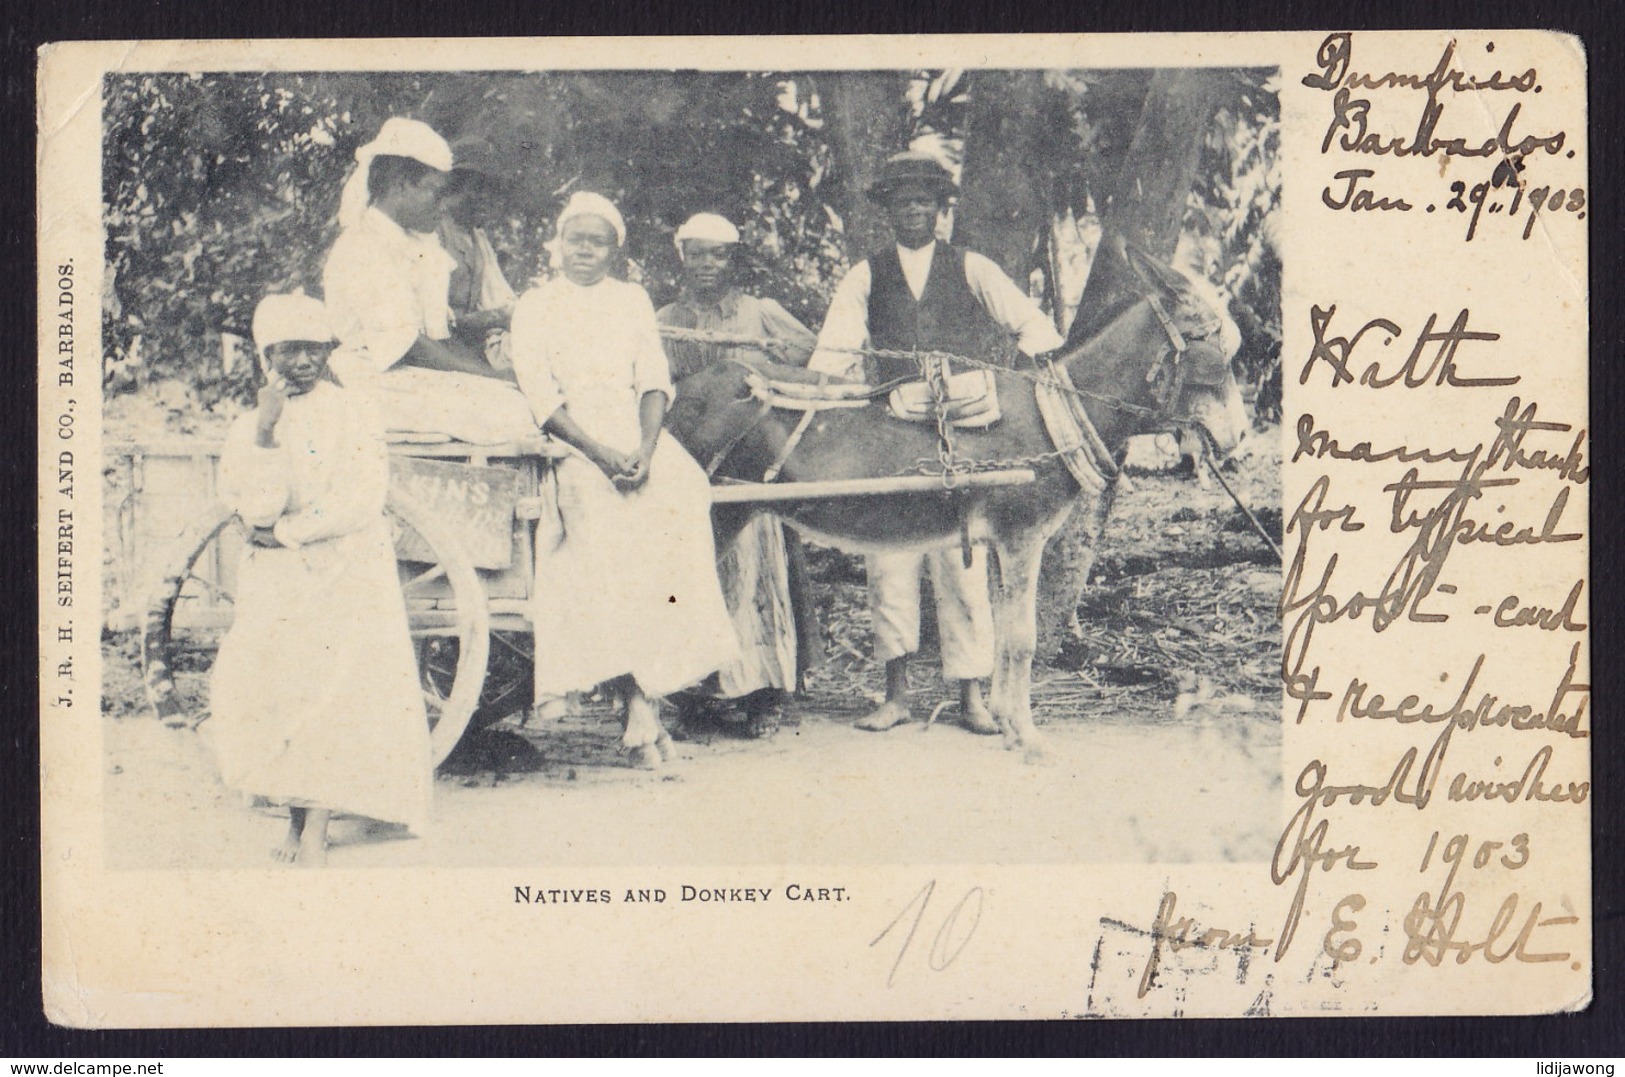 Dumfries.
Barbados.
Jan. 29th. 1903.
With
many thanks
for typical
post-card
& reciprocated
good wishes
for 1903
from E. Holt.
J. R. H. SEIFERT AND CO., BARBADOS.
NATIVES AND DONKEY CART.
10
www.delcampe.net
lidijawong